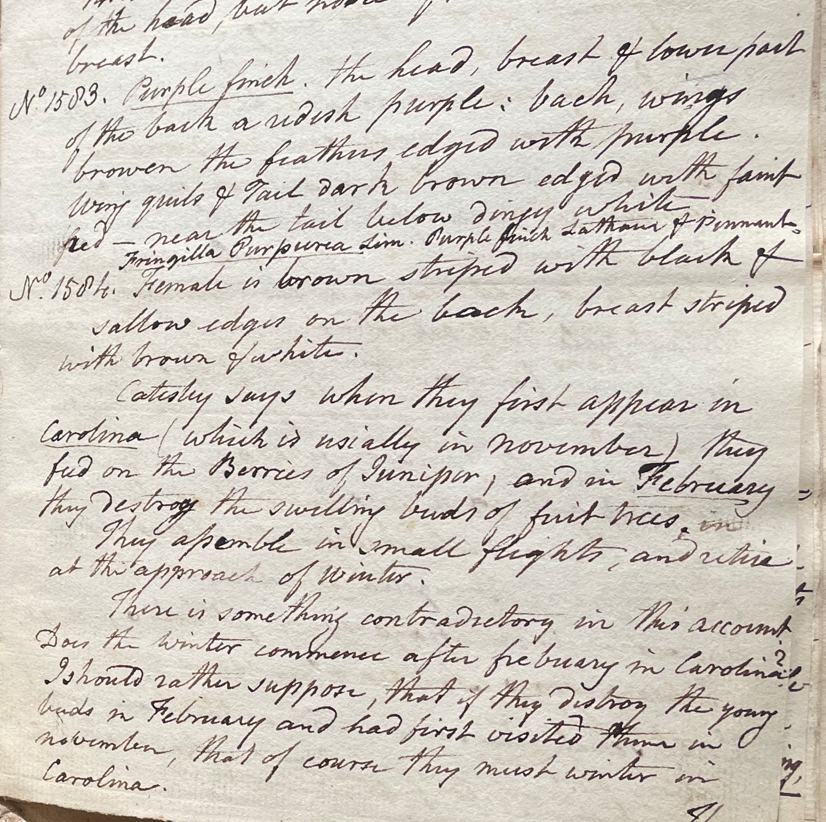 of the head, but
breast.
No 1583. Purple finch. the head, breast & lower part
of the back a redish purple: back, wings
browen the feathers edged with purple.
wing quils & Tail dark brown edged with faint
Red — near the tail below dingy white
Fringilla Purpurea Lin. Purple finch Latham & Pennant
No. 1584. Female is brown striped with black &
sallow edges on the back, breast striped
with brown & white.
Catesby says when they first appear in
Carolina (which is usially in november) they
fed on the Berries of Juniper, and in February
they destroy the swelling buds of fruit trees.
They assemble in small flights, and retire
at the approach of winter.
There is something contradictory in this account
Does the winter commence after frebuary in Carolina?
I should rather suppose, that if they distroy the young
buds in February and had first visited them in
november, that of course they must winter in
Carolina.